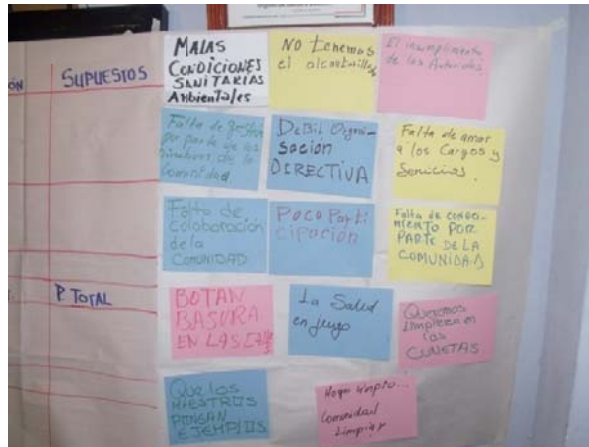 SUPUESTOS
P TOTAL
MALAS
CONDICIONES
SANITARIAS
Ambientales
NO tenemos
el alcantarillado
El incumplimiento
de las Autoridades
Falta de gestion
por parte de los
miembros de la
Comunidad
DeBil Organi-
sación
DIRECTIVA
Falta de amor
a los Cargos y
Servicios.
Falta de
colaboración
de la
COMUNIDAD
POCO Parti
cipación
Falta de
MIENTO POR
PARTE DE LA
COMUNIDAD
BOTAN
BASURA
EN LAS
La Salud
en juego
Queremos
limpieza en
las
CUNETAS.
Que los
MAESTROS
PONGAN
EJEMPLOS
Hogar limpio...
Comunidad
Limpia